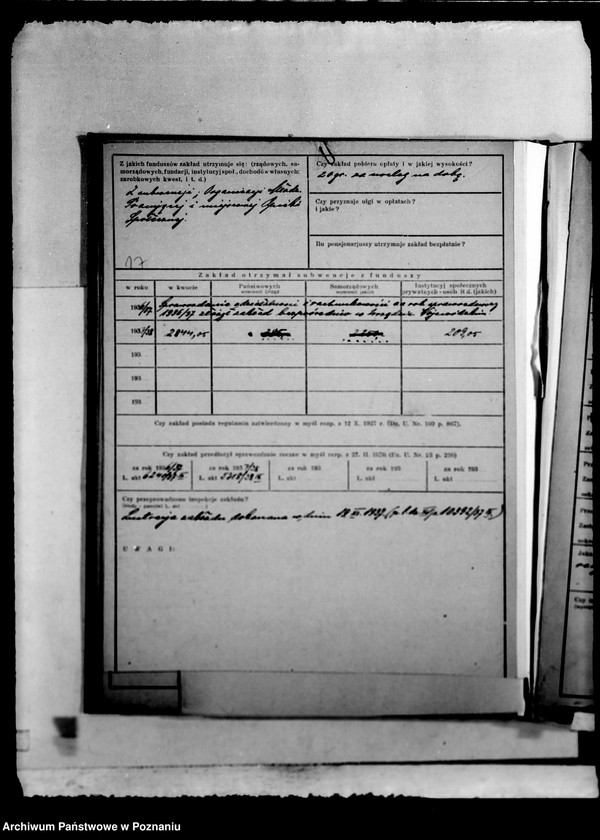 Z jakich funduszów zakład utrzymuje się: (rządowych, sa-
morządowych, fundacji, instytucyj społ., dochodów własnych:
zarobkowych kwest, i t. d.)
Z subwencji, Organizacji
i miejscowej Opieki
Społecznej
17
Czy zakład pobiera opłaty i w jakiej wysokości?
20 gr. za nocleg na dobę.
Czy przyznaje ulgi w opłatach?
i jakie?
Ilu pensjonarjuszy utrzymuje zakład bezpłatnie?
Zakład otrzymał subwencje z funduszy
w roku
w kwocie
Państwowych
wymienić Urząd
Samorządowych
wymienić jakich
Instytucyj społecznych
prywatnych - osób it d. (jakich)
1936/37 Sprawozdanie z działalności i rachunkowości za rok sprawozdawczy
1936/37 złożył zakład bezpośrednio w Urzędzie Wojewódzkim
1937/38 2844,05 209,05
193
193
193
Czy zakład posiada regulamin zatwierdzony w myśl rozp. z 12 X. 1927 r. (Dz. U. Nr. 100 p. 867).
Czy zakład przedłożył sprawozdanie roczne w myśl rozp. z 27. II. 1928 (Dz. U. Nr. 23 p. 206)
za rok 1936/37
za rok 1937/38
za rok 193
za rok 193
za rok 193
L. akt
L. akt 5218/38 IX
L. akt
L. akt
L. akt
Czy przeprowadzono inspekcje zakładu?
Lustracja zakładu dokonana w dniu 18 XI. 1937
UWAGI:
Archiwum Państwowe w Poznaniu